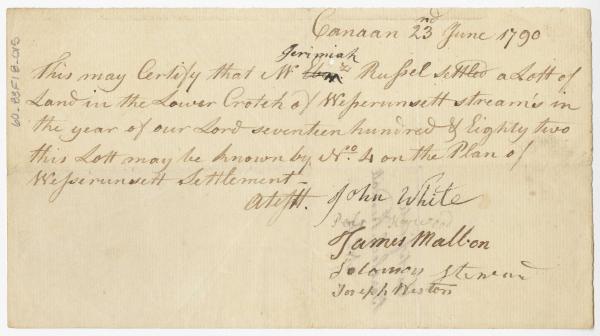 Canaan 23nd June 1790
Jerimiah
This may Certify that Mr Russel settled a Lott of
Land in the Lower Crotch of Wesserunsett stream's in
the year of our Lord seventeen hundred & Eighty two
this Lott may be known by No. 4 on the Plan of
Wesserunsett Settlement -
Atestt. John White
James Malbon
Solomon Steward
Joseph Weston
60-83F18-015